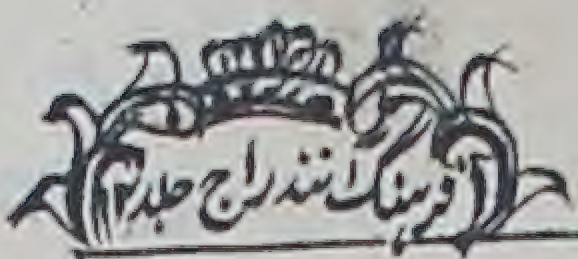 فرہنگ انندراج جلد ۲